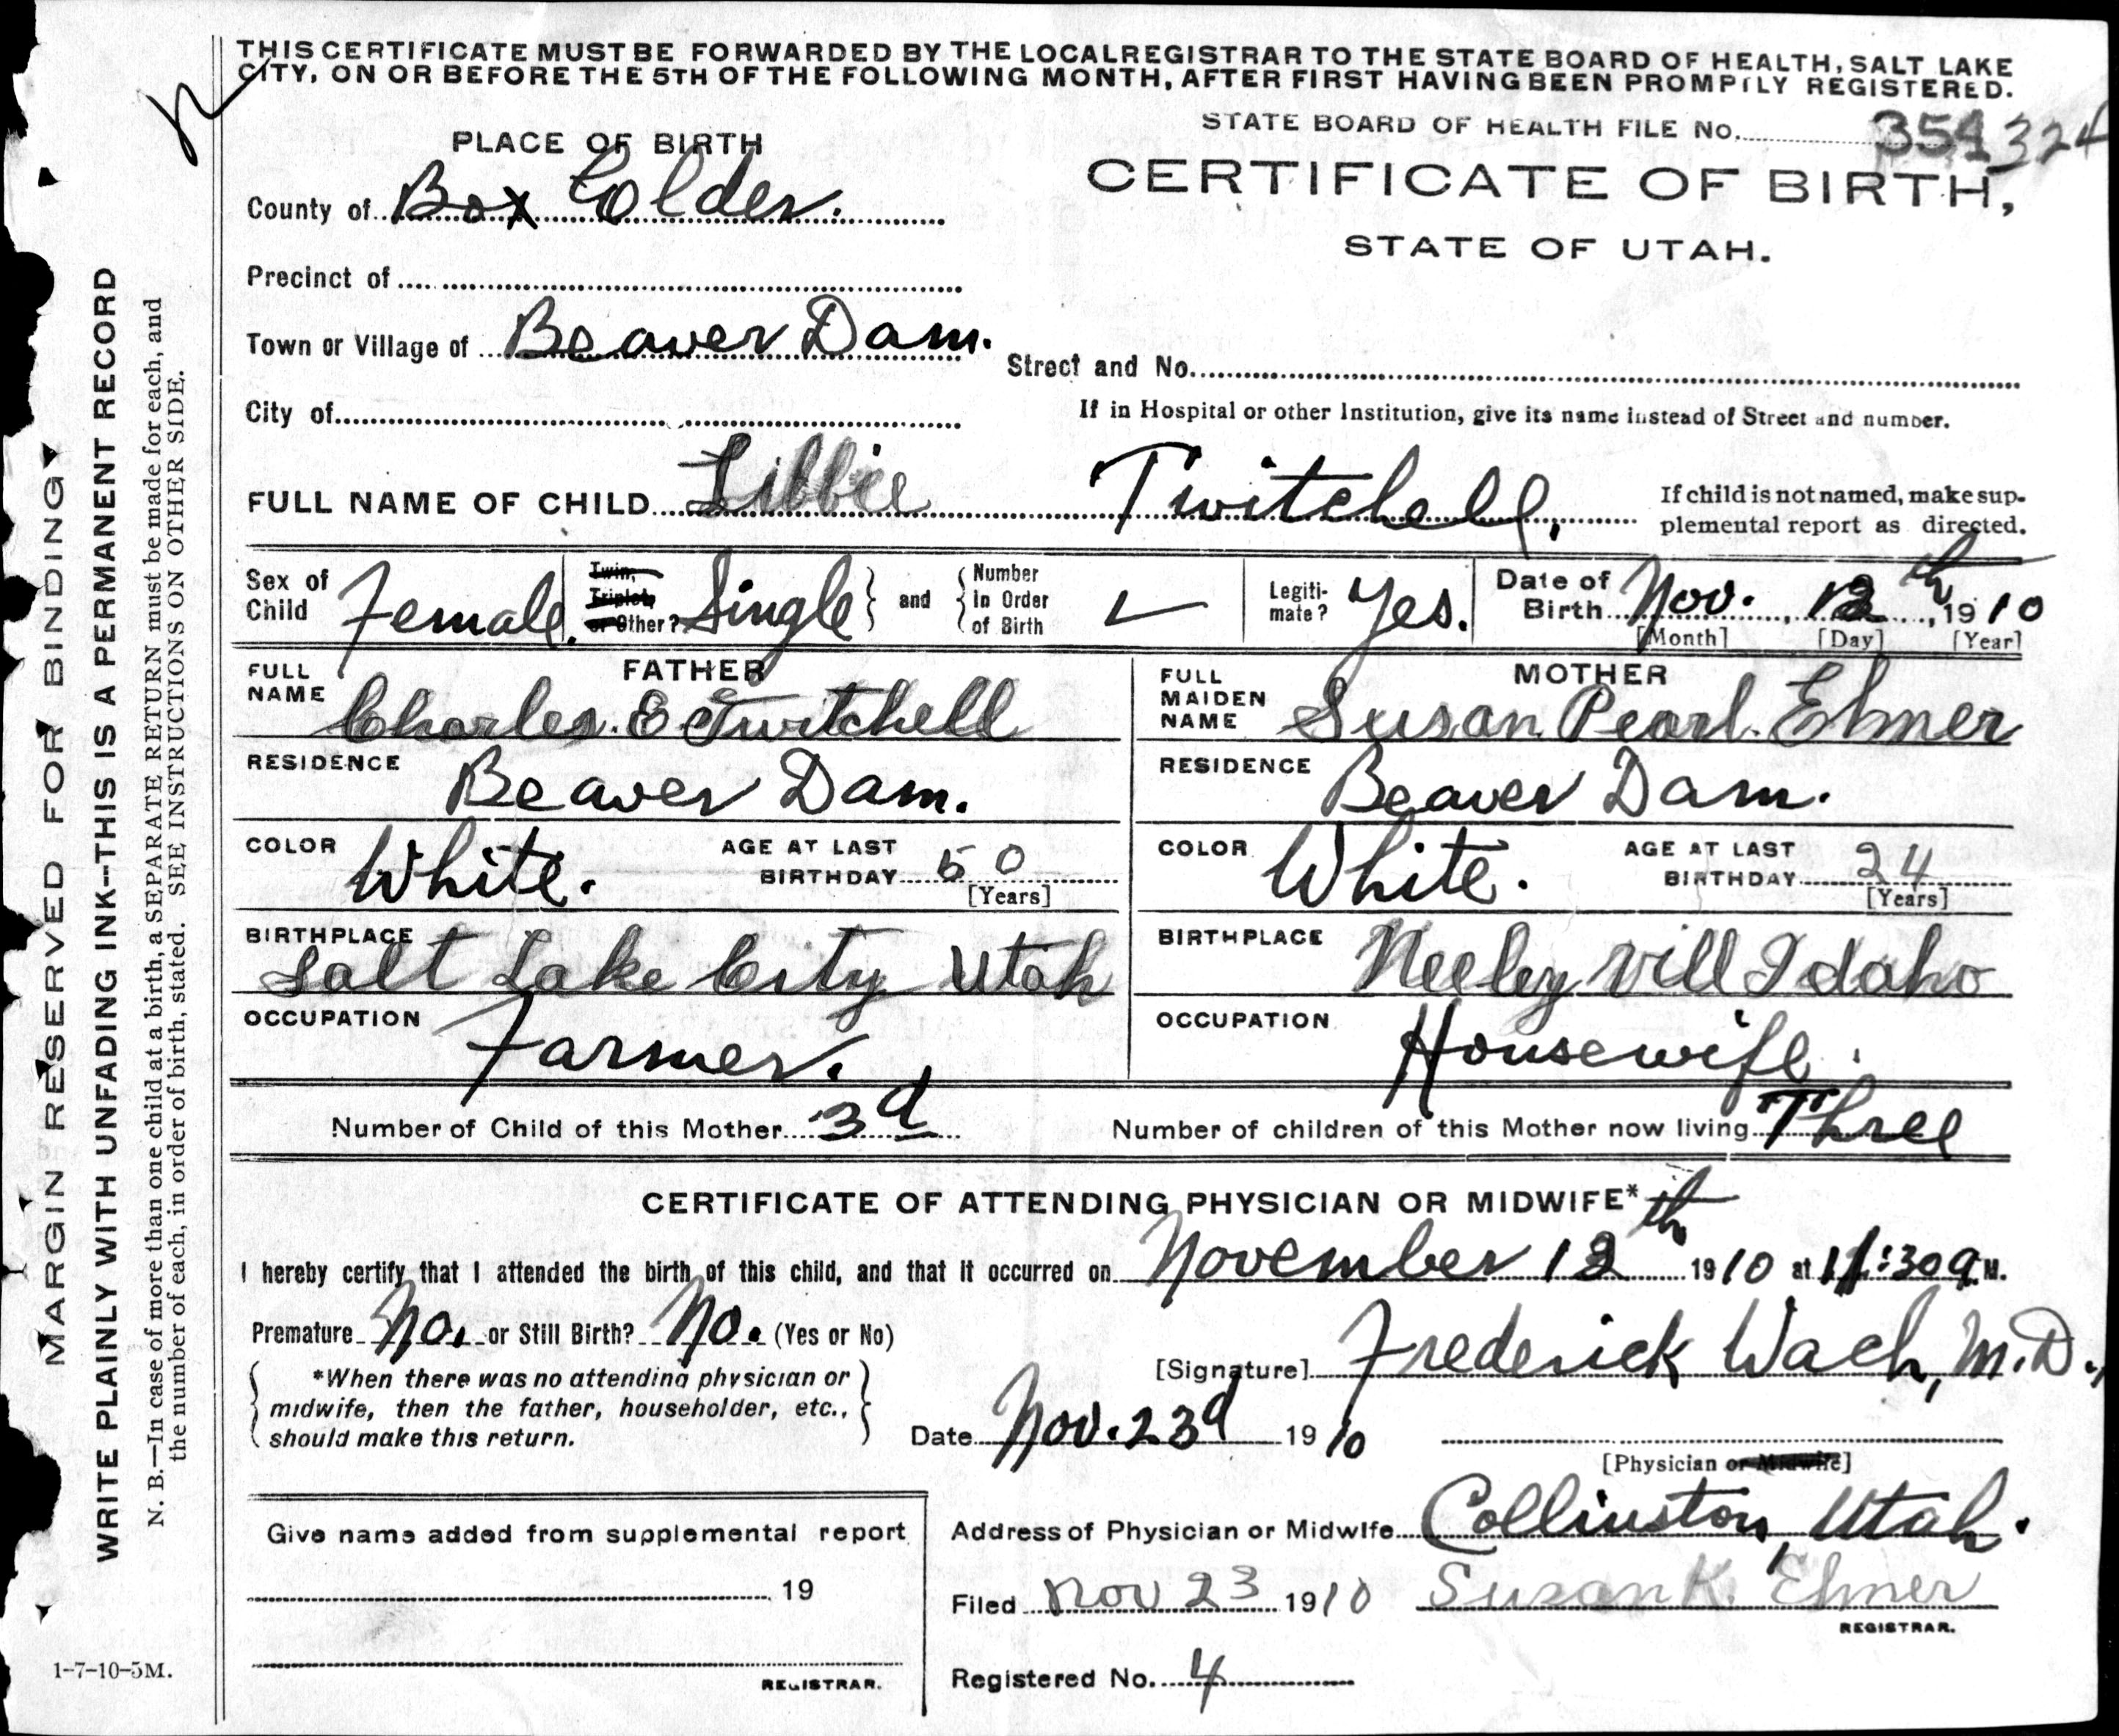 THIS CERTIFICATE MUST BE FORWARDED BY THE LOCAL REGISTRAR TO THE STATE BOARD OF HEALTH, SALT LAKE
CITY, ON OR BEFORE THE 5TH OF THE FOLLOWING MONTH, AFTER FIRST HAVING BEEN PROMPTLY REGISTERED.
STATE BOARD OF HEALTH FILE No.
PLACE OF BIRTH
CERTIFICATE OF BIRTH,
County of Box Elder.
STATE OF UTAH.
Precinct of
Town or Village of Beaver Dam.
Street and No.
City of
If in Hospital or other Institution, give its name instead of Street and number.
FULL NAME OF CHILD Libbie Twitchell.
If child is not named, make sup-
plemental report as directed.
Sex of Child Female. Twin, Triplet, or Other? Single and Number in Order of Birth Legiti-mate? Yes. Date of Birth Nov. 12th, 1910
[Month] [Day] [Year]
FATHER
FULL NAME Charles E Twitchell
MOTHER
FULL MAIDEN NAME Susan Pearl. Elmer
RESIDENCE Beaver Dam.
RESIDENCE Beaver Dam.
COLOR White. AGE AT LAST BIRTHDAY 50 [Years]
COLOR White. AGE AT LAST BIRTHDAY 24 [Years]
BIRTHPLACE Salt Lake City Utah
BIRTHPLACE Neeley Vill Idaho
OCCUPATION Farmer.
OCCUPATION Housewife.
Number of Child of this Mother 3d
Number of children of this Mother now living Three
CERTIFICATE OF ATTENDING PHYSICIAN OR MIDWIFE*
I hereby certify that I attended the birth of this child, and that it occurred on November 12th 1910 at 11:30 a.M.
Premature No. or Still Birth? No. (Yes or No)
[Signature] Frederick Wach, M.D.,
*When there was no attending physician or
midwife, then the father, householder, etc.,
should make this return.
Date Nov. 23d 1910
[Physician or Midwife]
Give name added from supplemental report
19
REGISTRAR.
Address of Physician or Midwife Collinston, Utah.
Filed Nov 23 1910 Susan K. Elmer
REGISTRAR.
Registered No. 4
MARGIN RESERVED FOR BINDING
WRITE PLAINLY WITH UNFADING INK—THIS IS A PERMANENT RECORD
N. B.—In case of more than one child at a birth, a SEPARATE RETURN must be made for each, and
the number of each, in order of birth, stated. SEE INSTRUCTIONS ON OTHER SIDE.
1-7-10-5M.